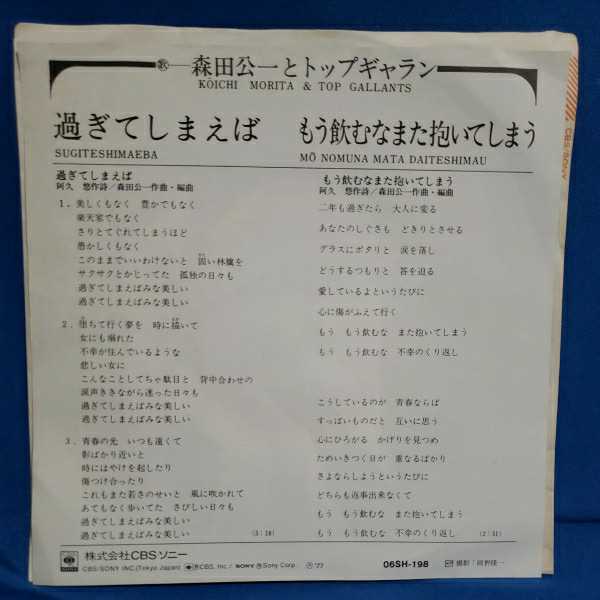 歌 森田公一とトップギャラン
KŌICHI MORITA & TOP GALLANTS
過ぎてしまえば
SUGITESHIMAEBA
過ぎてしまえば
阿久 悠作詩/森田公一作曲・編曲
1. 美しくもなく 豊かでもなく
楽天家でもなく
さりとてぐれてしまうほど
愚かしくもなく
このままでいいわけないと 固い林檎を
サクサクとかじってた 孤独の日々も
過ぎてしまえばみな美しい
過ぎてしまえばみな美しい
2. 堕ちて行く夢を 時に描いて
女にも溺れた
不幸が住んでいるような
悲しい女に
こんなことしてちゃ駄目と 背中合わせの
涙声ききながら迷った日々も
過ぎてしまえばみな美しい
過ぎてしまえばみな美しい
3. 青春の光 いつも遠くて
影ばかり近いと
時にはやけを起したり
傷つけ合ったり
これもまた若さのせいと 風に吹かれて
あてもなく歩いてた さびしい日々も
過ぎてしまえばみな美しい
過ぎてしまえばみな美しい
もう飲むなまた抱いてしまう
MŌ NOMUNA MATA DAITESHIMAU
もう飲むなまた抱いてしまう
阿久 悠作詩/森田公一作曲・編曲
二年も過ぎたら 大人に変る
あなたのしぐさも どきりとさせる
グラスにポタリと 涙を落し
どうするつもりと 答を迫る
愛しているよというたびに
心に傷がふえて行く
もう もう飲むな また抱いてしまう
もう もう飲むな 不幸のくり返し
こうしているのが 青春ならば
すっぱいものだと 互いに思う
心にひろがる かげりを見つめ
ためいきつく日が 重なるばかり
さよならしようというたびに
どちらも返事出来なくて
もう もう飲むな また抱いてしまう
もう もう飲むな 不幸のくり返し
(2:51)
株式会社CBSソニー
CBS/SONY INC.(Tokyo Japan)
CBS, Inc./ SONY Sony Corp. Ⓟ'77
06SH-198
CBS/SONY